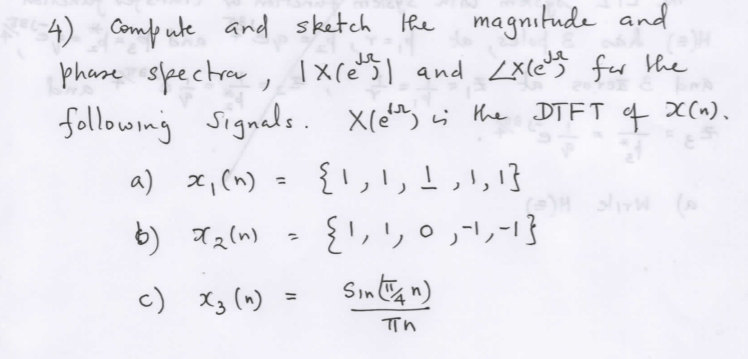 4) Compute and sketch the magnitude and
phase spectra, |X(e^jΩ)| and ∠X(e^jΩ) for the
following signals. X(e^jΩ) is the DTFT of x(n).
a) x₁(n) = {1, 1, 1̲, 1, 1}
b) x₂(n) = {1, 1, 0, -1, -1}
c) x₃(n) = sin(π/4 n) / πn